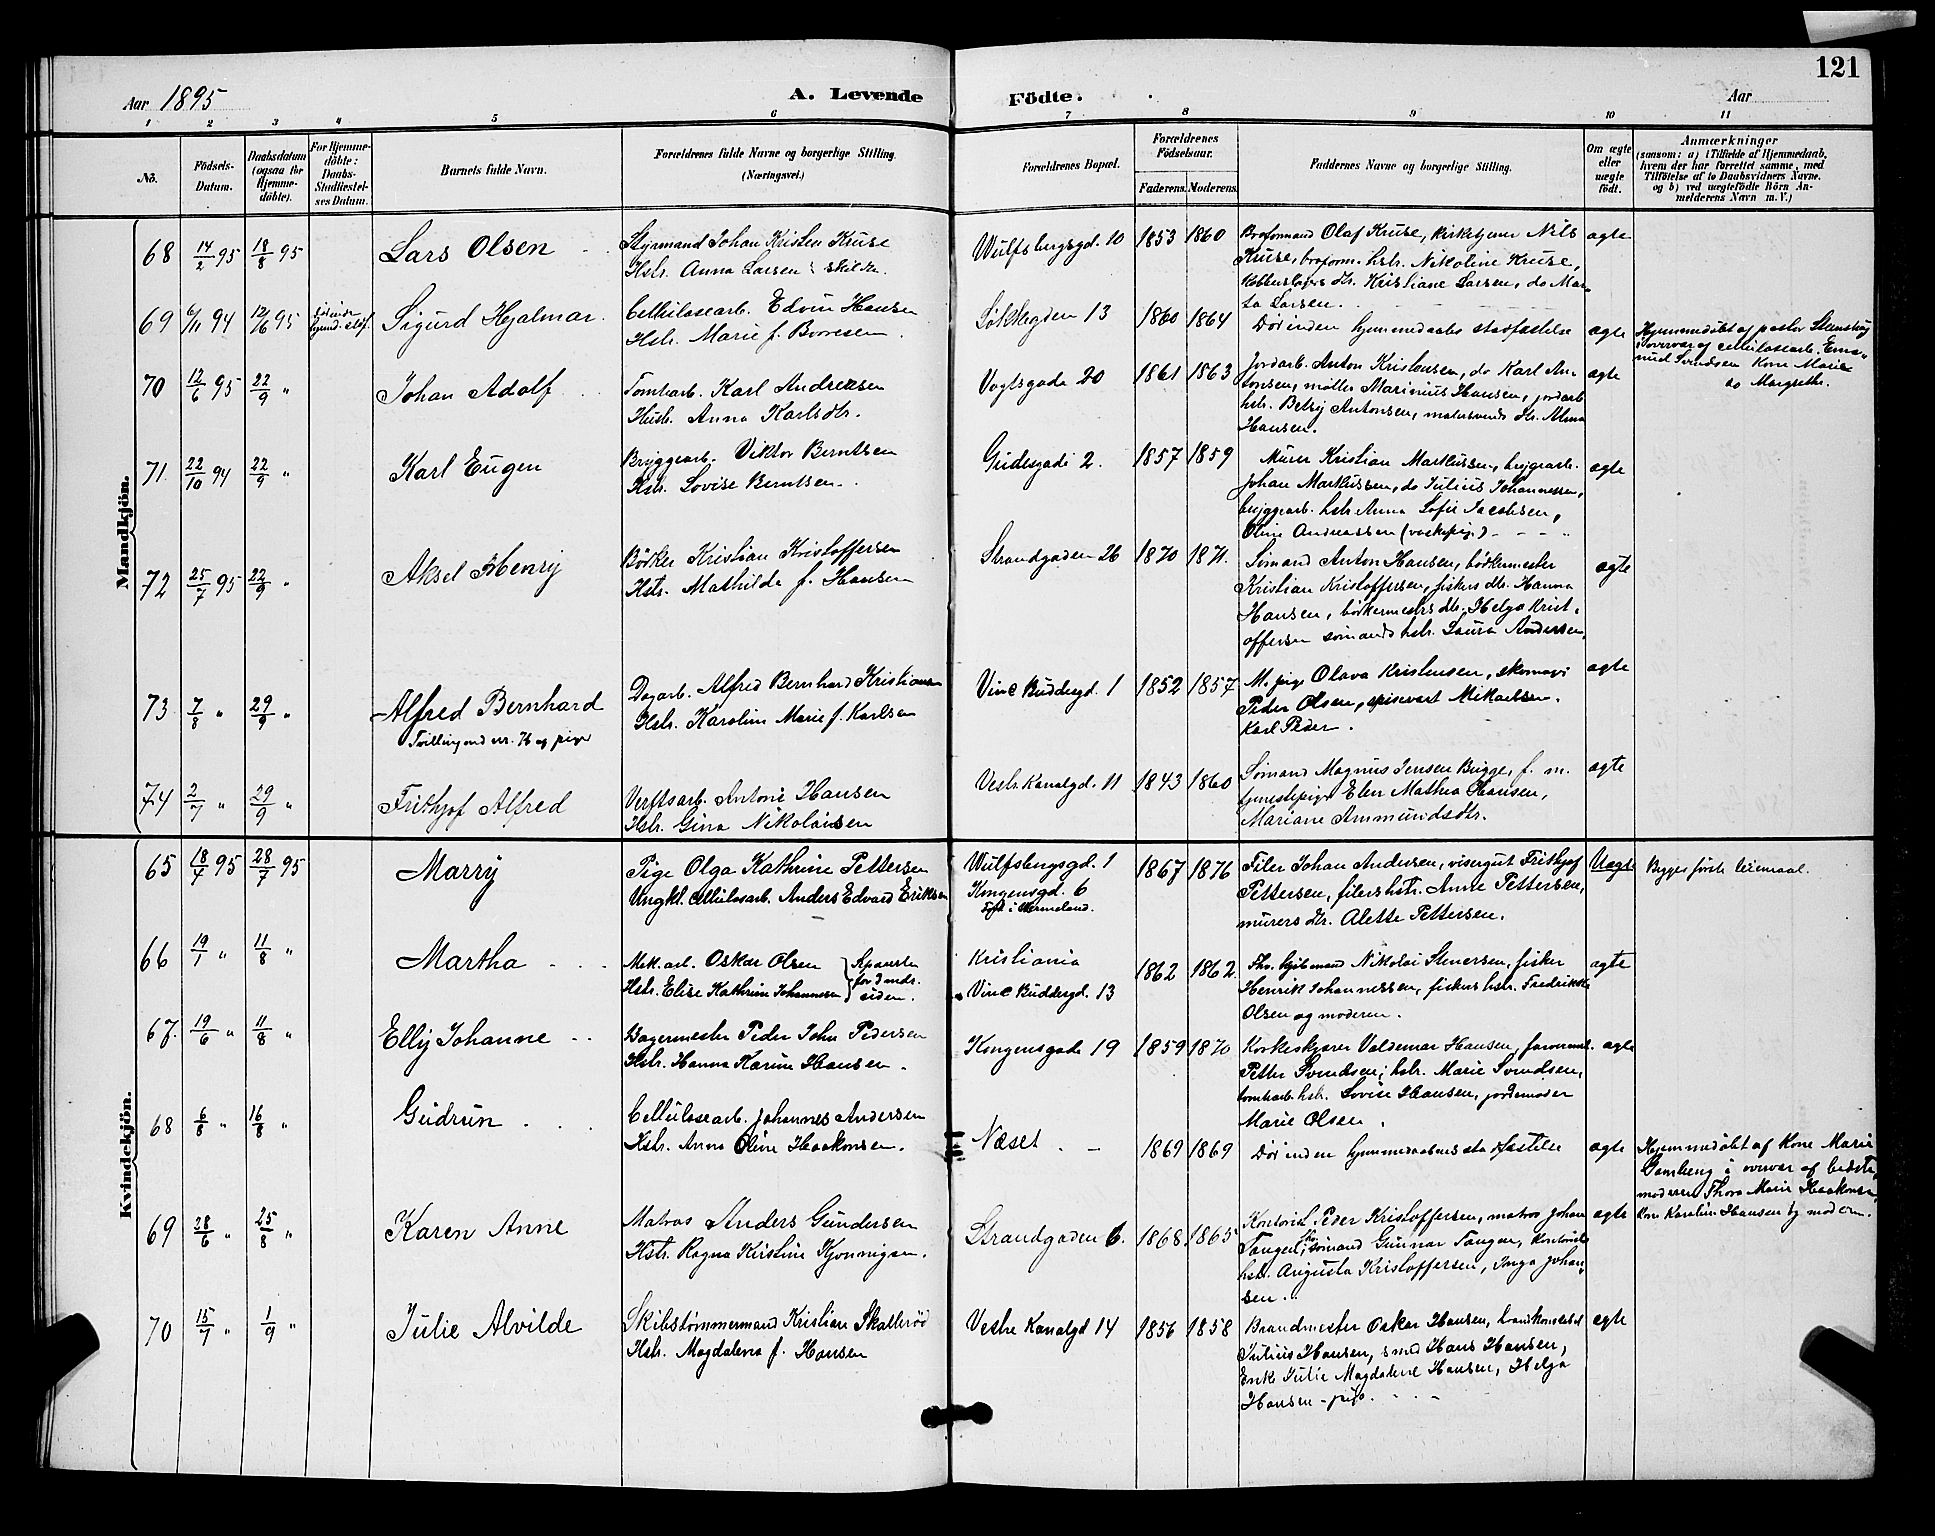 121
Aar 1895
A. Levende Födte.
Aar
1 2 3 4 5 6 7 8 9 10 11
No.
Födsels-Datum.
Daabsdatum (ogsaa for Hjemmedöbte).
For Hjemmedöbte: Daabs-Stadfæstelses Datum.
Barnets fulde Navn.
Forældrenes fulde Navne og borgerlige Stilling. (Næringsvei.)
Forældrenes Bopæl.
Forældrenes Födselsaar.
Faderens. Moderens.
Faddernes Navne og borgerlige Stilling.
Om ægte eller uægte födt.
Anmærkninger
(saasom: a) i Tilfælde af Hjemmedaab,
hvem der har forrettet samme, med
Tilföielse af to Daabsvidners Navne.
og b) ved uægtefödte Börn An-
melderens Navn m. V.)
Mandkjön.
68 14/2 95 18/8 95 Lars Olsen
Styrmand Johan Kristen Kruse
Hstr. Anna Larsen skilde.
Wulfsbergsgd. 10 1853 1860
Broformand Olaf Kruse, kirketjener Nils
Kruse, broform. hstr. Nikoline Kruse,
Kobberslagers dtr. Kristiane Larsen, do Mar-
ta Larsen.
ægte
69 6/11 94 12/6 95 Sigurd Hjalmar
Cellulosearb. Edvin Hansen
Hstr. Marie f. Borresen
13 1860 1864
Dör inden hjemmedaabs stadfæstelse
ægte
Hjemmedöbt af pastor
i overvær af cellulosearb. Ema-
nuel Svendsen Kone Marie
do Margrethe.
70 12/6 95 22/9 " Johan Adolf
Tomtearb. Karl Andersen
Hustr. Anna Karlsdtr.
Vogtsgade 20 1861 1863
Jordarb. Anton Kristensen, do Karl An-
tonsen, møller Marinius Hansen, jordarb
hstr. Betsy Antonsen, malersvends dtr. Alma
Hansen.
ægte
71. 22/10 94 22/9 " Karl Eugen
Bryggearb. Viktor Berntsen
Hstr. Lovise Berntsen.
Gudesgade 2. 1857 1859
Murer Kristian Markussen, bryggearb.
Johan Markussen, do Julius Johannessen,
bryggearb. hstr Anna Sofie Jacobsen,
Oline Andreassen (vaskepige)
ægte
72 25/7 95 22/9 " Aksel Henry
Bödker Kristian Kristoffersen
Hstr. Mathilde f. Hansen
Strandgaden 26 1870 1871.
Sömand Anton Hansen, bödkermester
Kristian Kristoffersen, fiskers dtr. Hanna
Hansen, bödkermesters dtr. Helga Krist-
offersen sömands hstr. Laura Andersen.
ægte
73 7/8 " 29/9 " Alfred Bernhard
Tvilling med nr. 76 af piger
Dagarb. Alfred Bernhard Kristiansen
Hstr. Karoline Marie f. Karlsen
Vinc Buddesgd. 1 1852 1857
M. pige Olava Kristensen, skomager
Peder Olsen, spisevært Mikaelsen.
Karl Peder.
ægte
74 2/7 " 29/9 " Frithjof Alfred
Verftsarb. Antoni Hansen
Hstr. Gina Nikolaisen
Vestr. Kanalgd. 11 1843 1860
Sömand Magnus Jensen Brygge, f. m.
tjenestepige Elen Mathea Hansen,
Mariane Ammundsdtr.
ægte
Kvindekjön.
65 18/7 95 28/7 95 Marry
Pige Olga Kathrine Pettersen
Ungkl. Cellulosarb. Anders Edvard Eriksen
Wulfsbergsgd. 1
Kongensgd. 6
Födt i Wermeland.
1867 1876
Filer Johan Andersen, visergut Frithjof
Pettersen, filers hstr. Anne Pettersen,
murers dtr. Alette Pettersen.
Uægte
Begges første leiermaal.
66 19/1 " 11/8 " Martha
Mek. arb. Oskar Olsen
Hstr. Elise Kathrine Johannesen
for 3 mdr. siden.
Kristiania
Vinc Buddesgd. 13
1862 1862.
Nikolai Stenersen, fisker
Henrik Johannessen, fiskers hstr. Fredrikke
Olsen og moderen.
ægte
67. 19/6 " 11/8 " Elly Johanne
Bagermester Peder John Pedersen
Hstr. Hanna Karine Hansen.
Kongensgade 19 1859 1870
Korkeskjærer Valdemar Hansen,
Petter Svendsen, hstr. Marie Svendsen,
tomtearb. hstr. Lovise Hansen, jordemoder
Marie Olsen.
ægte
68 6/8 " 16/8 " Gudrun
Cellulosearb. Johannes Andersen
Hstr. Anna Oline Haakonsen.
Næset 1869 1869
Dör inden hjemmedaabens stadfæstelse
ægte
Hjemmedöbt af Kone Marie
i overvær af bedste-
moderen Thora Marie Haakonsen
Kone Karoline Hansen og moderen.
69 28/6 " 25/8 " Karen Anne
Matros Anders Gundersen
Hstr. Ragna Kristine Kjonnigsen.
Strandgaden 6. 1868 1865
Kontorist Peder Kristoffersen, matros Johan
Tangen, sömand Gunnar Tangen, kontorist
hstr. Augusta Kristoffersen, Inga Johan-
sen.
ægte
70 15/7 " 1/9 " Julie Alvilde
Skibstømmermand Kristian Skalleröd
Hstr. Magdalena f. Hansen
Vestre Kanalgd 14 1856 1858
Brandmester Oskar Hansen, brandkonstabel
Julius Hansen, smed Hans Hansen,
Enke Julie Magdalene Hansen, Helga
Hansen - pige.
ægte